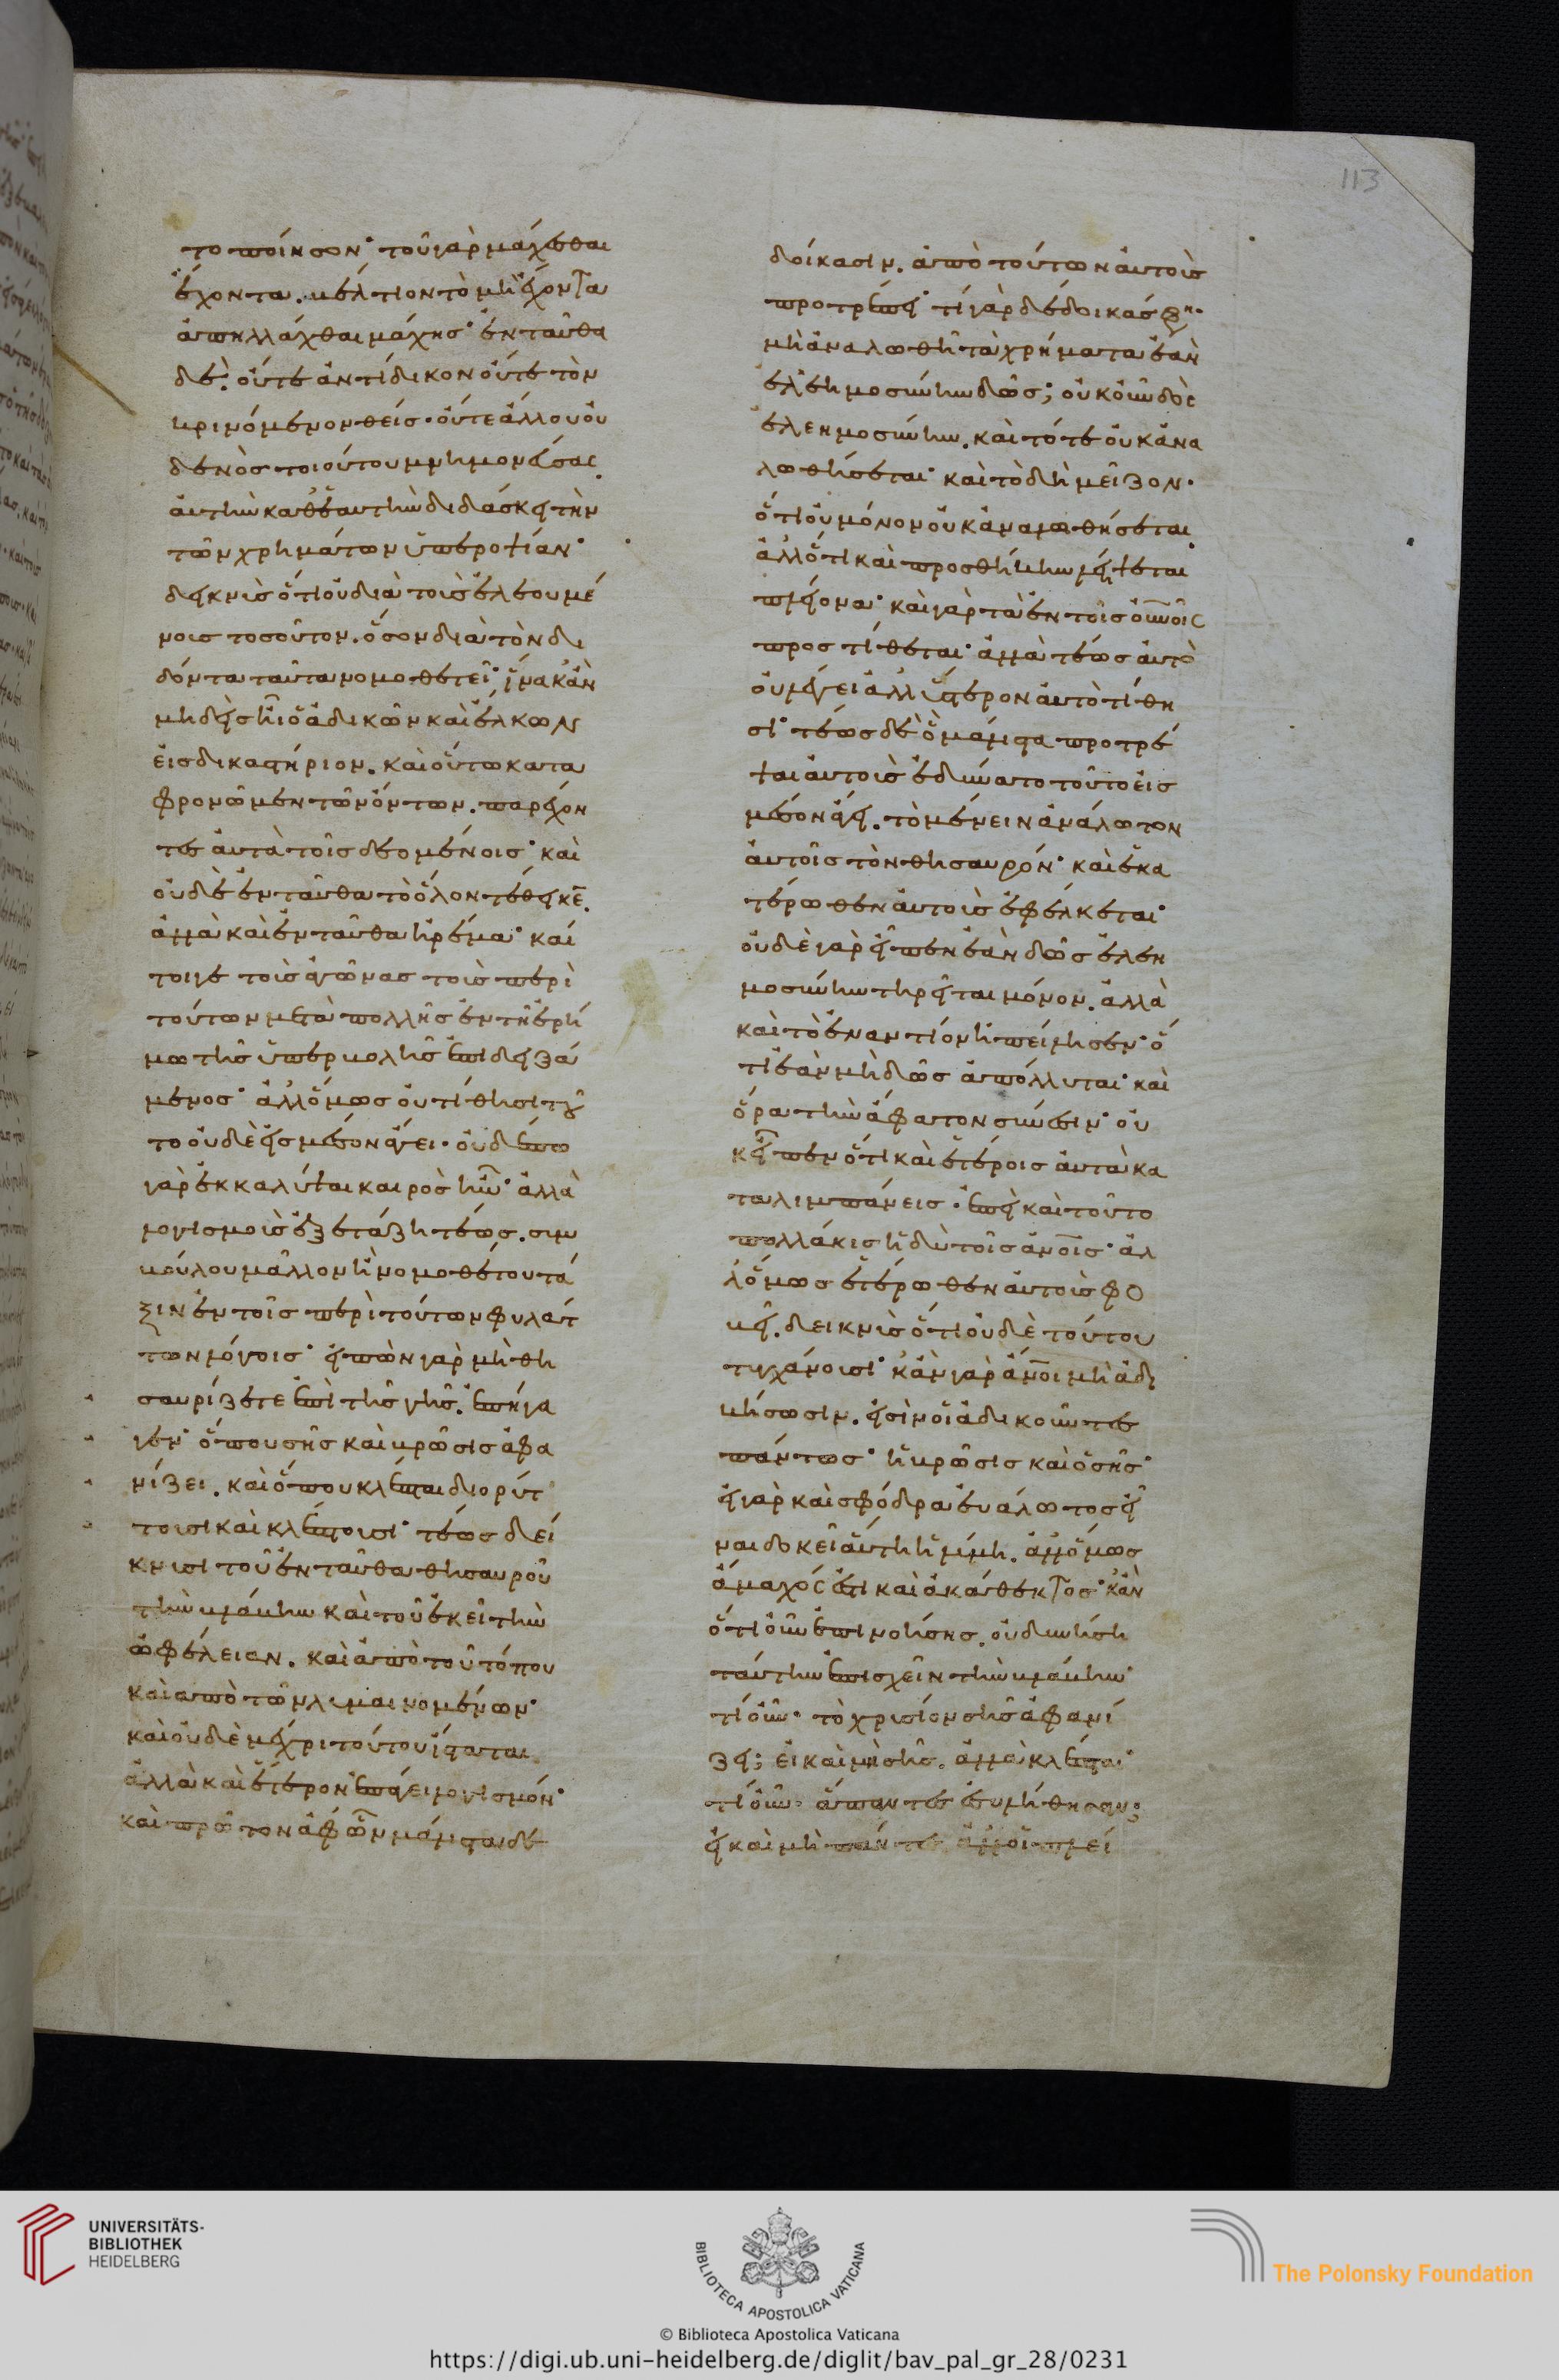 το ποίησον· τοῦ γὰρ μάχεσθαι
ἔχοντα. βέλτιον τὸ μὴ ἔχοντα
ἀπηλλάχθαι μάχης· ἐνταῦθα
δὲ. οὔτε ἀντίδικον οὔτε τὸν
κρινόμενον θεὶς· οὔτε ἄλλου οὐ
δενὸς τοιούτου μνημονεύσας.
αὐτὴν καθ' ἑαυτὴν διδάσκει τὴν
τῶν χρημάτων ὑπεροψίαν·
δεικνὺς ὅτι οὐ διὰ τοὺς ἐλεουμέ
νους τοσοῦτον. ὅσον διὰ τὸν δι
δόντα ταῦτα νομοθετεῖ· ἵνα κἂν
μηδεὶς ἦ ὁ ἀδικῶν καὶ ἕλκων
εἰς δικαστήριον. καὶ οὕτω κατα
φρονῶμεν τῶν ὄντων. παρέχον
τες αὐτὰ τοῖς δεομένοις· καὶ
οὐδὲ ἐνταῦθα τὸ ὅλον τέθεικε.
ἀλλὰ καὶ ἐνταῦθα ἠρέμα· καί
τοιγε τοὺς ἀγῶνας τοὺς περὶ
τούτων μετὰ πολλῆς ἐν τῆ ἐρή
μω τῆς ὑπερβολῆς ἐπιδειξά
μενος· ἀλλ' ὅμως οὐ τίθησι τοῦ
το οὐδὲ εἰς μέσον ἄγει· οὐδέπω
γὰρ ἐκκαλύψαι καιρὸς ἦν· ἀλλὰ
λογισμοὺς ἐξετάζη τέως. συμ
βούλου μᾶλλον ἢ νομοθέτου τά
ξιν ἐν τοῖς περὶ τούτων φυλάτ
των λόγοις· εἰπὼν γὰρ μὴ θη
σαυρίζετε ἐπὶ τῆς γῆς. ἐπήγα
γεν· ὅπου σὴς καὶ βρῶσις ἀφα
νίζει. καὶ ὅπου κλέπται διορύτ
τουσι καὶ κλέπτουσι· τέως δεί
κνυσι τοῦ ἐνταῦθα θησαυροῦ
τὴν βλάβην καὶ τοῦ ἐκεῖ τὴν
ὠφέλειαν. καὶ ἀπὸ τοῦ τόπου
καὶ ἀπὸ τῶν λυμαινομένων·
καὶ οὐδὲ μέχρι τούτου ἵσταται
ἀλλὰ καὶ ἕτερον ἐπάγει λογισμόν·
καὶ πρῶτον ἀφ' ὧν μάλιστα δε
113
δοίκασιν. ἀπὸ τούτων αὐτοὺς
προτρέπει· τί γὰρ δέδοικάς φη·
μὴ ἀναλωθῆ τὰ χρήματα ἐὰν
ἐλεημοσύνην δῶς; οὐκοῦν δὸς
ἐλεημοσύνην. καὶ τότε οὐκ ἀνα
λωθήσεται· καὶ τὸ δὴ μεῖζον·
ὅτι οὐ μόνον οὐκ ἀναλωθήσεται
ἀλλ' ὅτι καὶ προσθήκην λήψεται
πλείονα· καὶ γὰρ τὰ ἐν τοῖς οὐνοῖς
προστίθεται· ἀλλὰ τέως αὐτὸ
οὐ λέγει ἀλλ' ὕστερον αὐτὸ τίθη
σι· τέως δὲ ὃ μάλιστα προτρέ
ψαι αὐτοὺς ἐδύνατο τοῦτο εἰς
μέσον ἄγει. τὸ μένειν ἀνάλωτον
αὐτοῖς τὸν θησαυρόν· καὶ ἑκα
τέρωθεν αὐτοὺς ἐφέλκεται·
οὐδὲ γὰρ εἶπεν ἐὰν δῶς ἐλεη
μοσύνην τηρεῖται μόνον. ἀλλὰ
καὶ τὸ ἐναντίον ἠπείλησεν· ὅ
τι ἐὰν μὴ δῶς ἀπόλλυται· καὶ
ὅρα τὴν ἄφατον σύνεσιν· οὐ
κ εἶπεν ὅτι καὶ ἑτέροις αὐτὰ κα
ταλιμπάνεις· ἐπεὶ καὶ τοῦτο
πολλάκις ἡδὺ τοῖς ἀνοις· ἀλ
λ' ὅμως ἑτέρωθεν αὐτοὺς φο
βεῖ. δεικνὺς ὅτι οὐδὲ τούτου
τυγχάνουσι· κἂν γὰρ ἀνοι μὴ ἀδι
κήσωσιν. εἰσὶν οἱ ἀδικοῦντες
πάντως· ἡ βρῶσις καὶ ὁ σής·
εἰ γὰρ καὶ σφόδρα εὐάλωτος εἶ
ναι δοκεῖ αὕτη ἡ λύμη. ἀλλ' ὅμως
ἄμαχός ἐστι καὶ ἀκάθεκτος· κἂν
ὅτι οὖν ἐπινοήσης. οὐ δυνήση
ταύτην ἐπισχεῖν τὴν βλάβην·
τί οὖν· τὸ χρυσίον σὴς ἀφανί
ζει; εἰ καὶ μὴ σὴς. ἀλλὰ κλέπται·
τί οὖν· ἅπαντες ἐσυλήθησαν;
εἰ καὶ μὴ πάντες ἀλλ' οἱ πλεί
UNIVERSITÄTS-
BIBLIOTHEK
HEIDELBERG
BIBLIOTHECA APOSTOLICA VATICANA
The Polonsky Foundation
© Biblioteca Apostolica Vaticana
https://digi.ub.uni-heidelberg.de/diglit/bav_pal_gr_28/0231